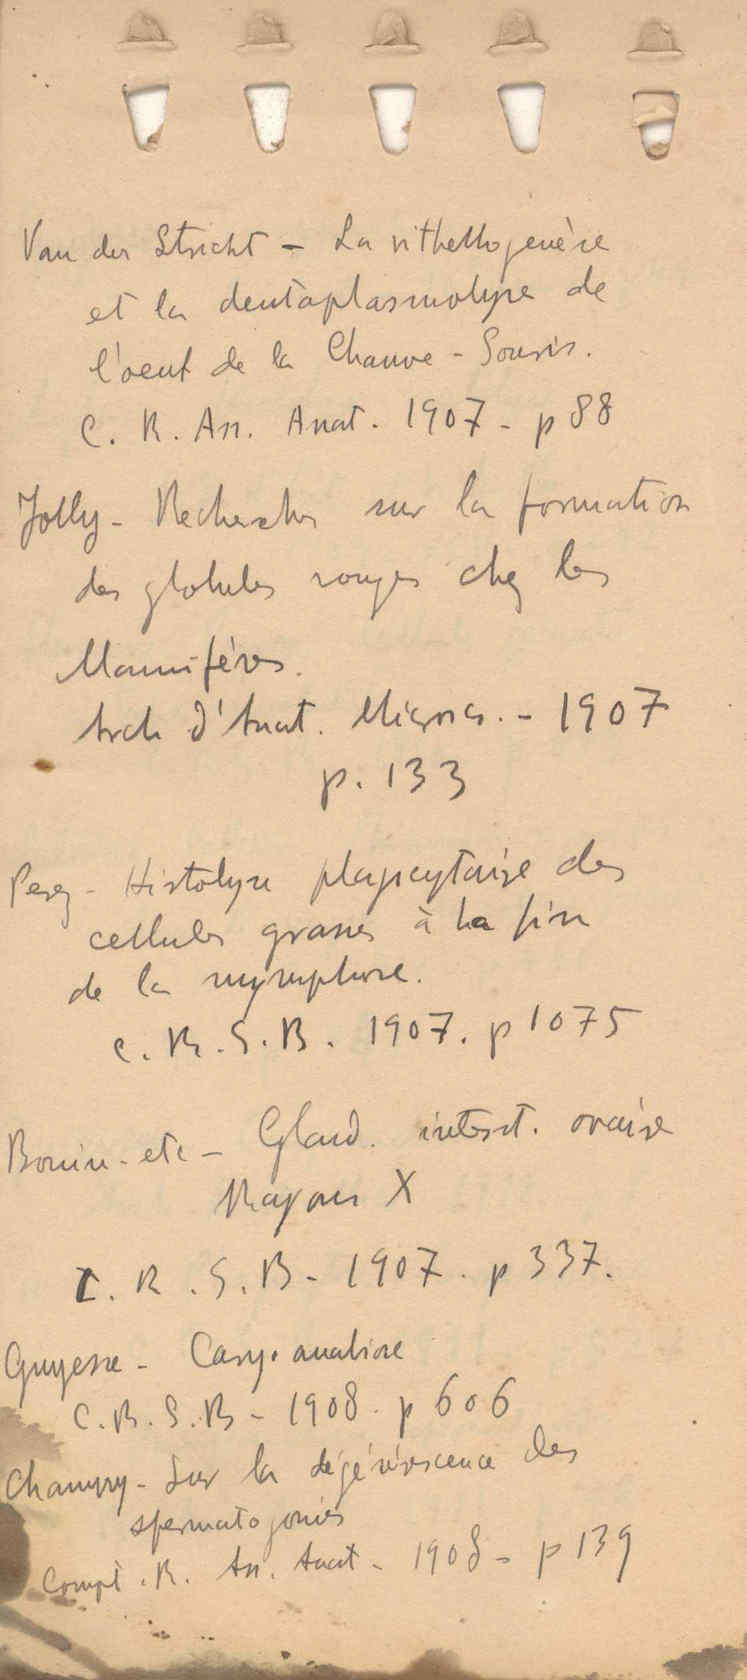 Van der Stricht - La vithellogenèse
et la deutoplasmolyse de
l'oeuf de la Chauve-Souris.
C. R. Ass. Anat. 1907 - p 88
Jolly - Recherches sur la formation
des globules rouges chez les
Mammifères.
Arch d'Anat. Micros. - 1907
p. 133
Perez - Histolyse phagocytaire des
cellules grasses à la fin
de la nymphose.
C. R. S. B. 1907. p 1075
Bouin - etc - Gland. interst. ovaire
Rayons X
C. R. S. B - 1907. p 337.
Guyesse - Caryoanabiose
C. R. S. B - 1908. p 606
Champy - Sur la dégénérescence des
spermatogonies
Compt. R. Ass. Anat - 1908 - p 139